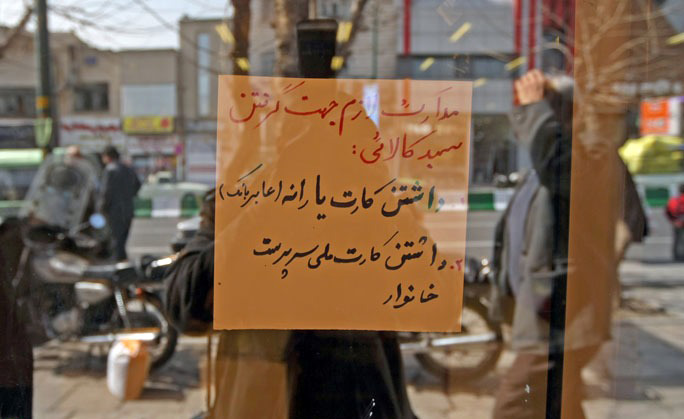 مدارک لازم جهت گرفتن
سبد کالائی :
۱. داشتن کارت یارانه (عابر بانک)
۲. داشتن کارت ملی سرپرست
خانوار